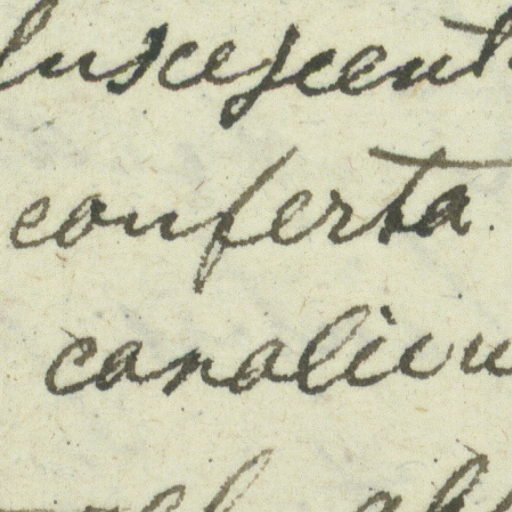 luscescent
conferta.
canalicu